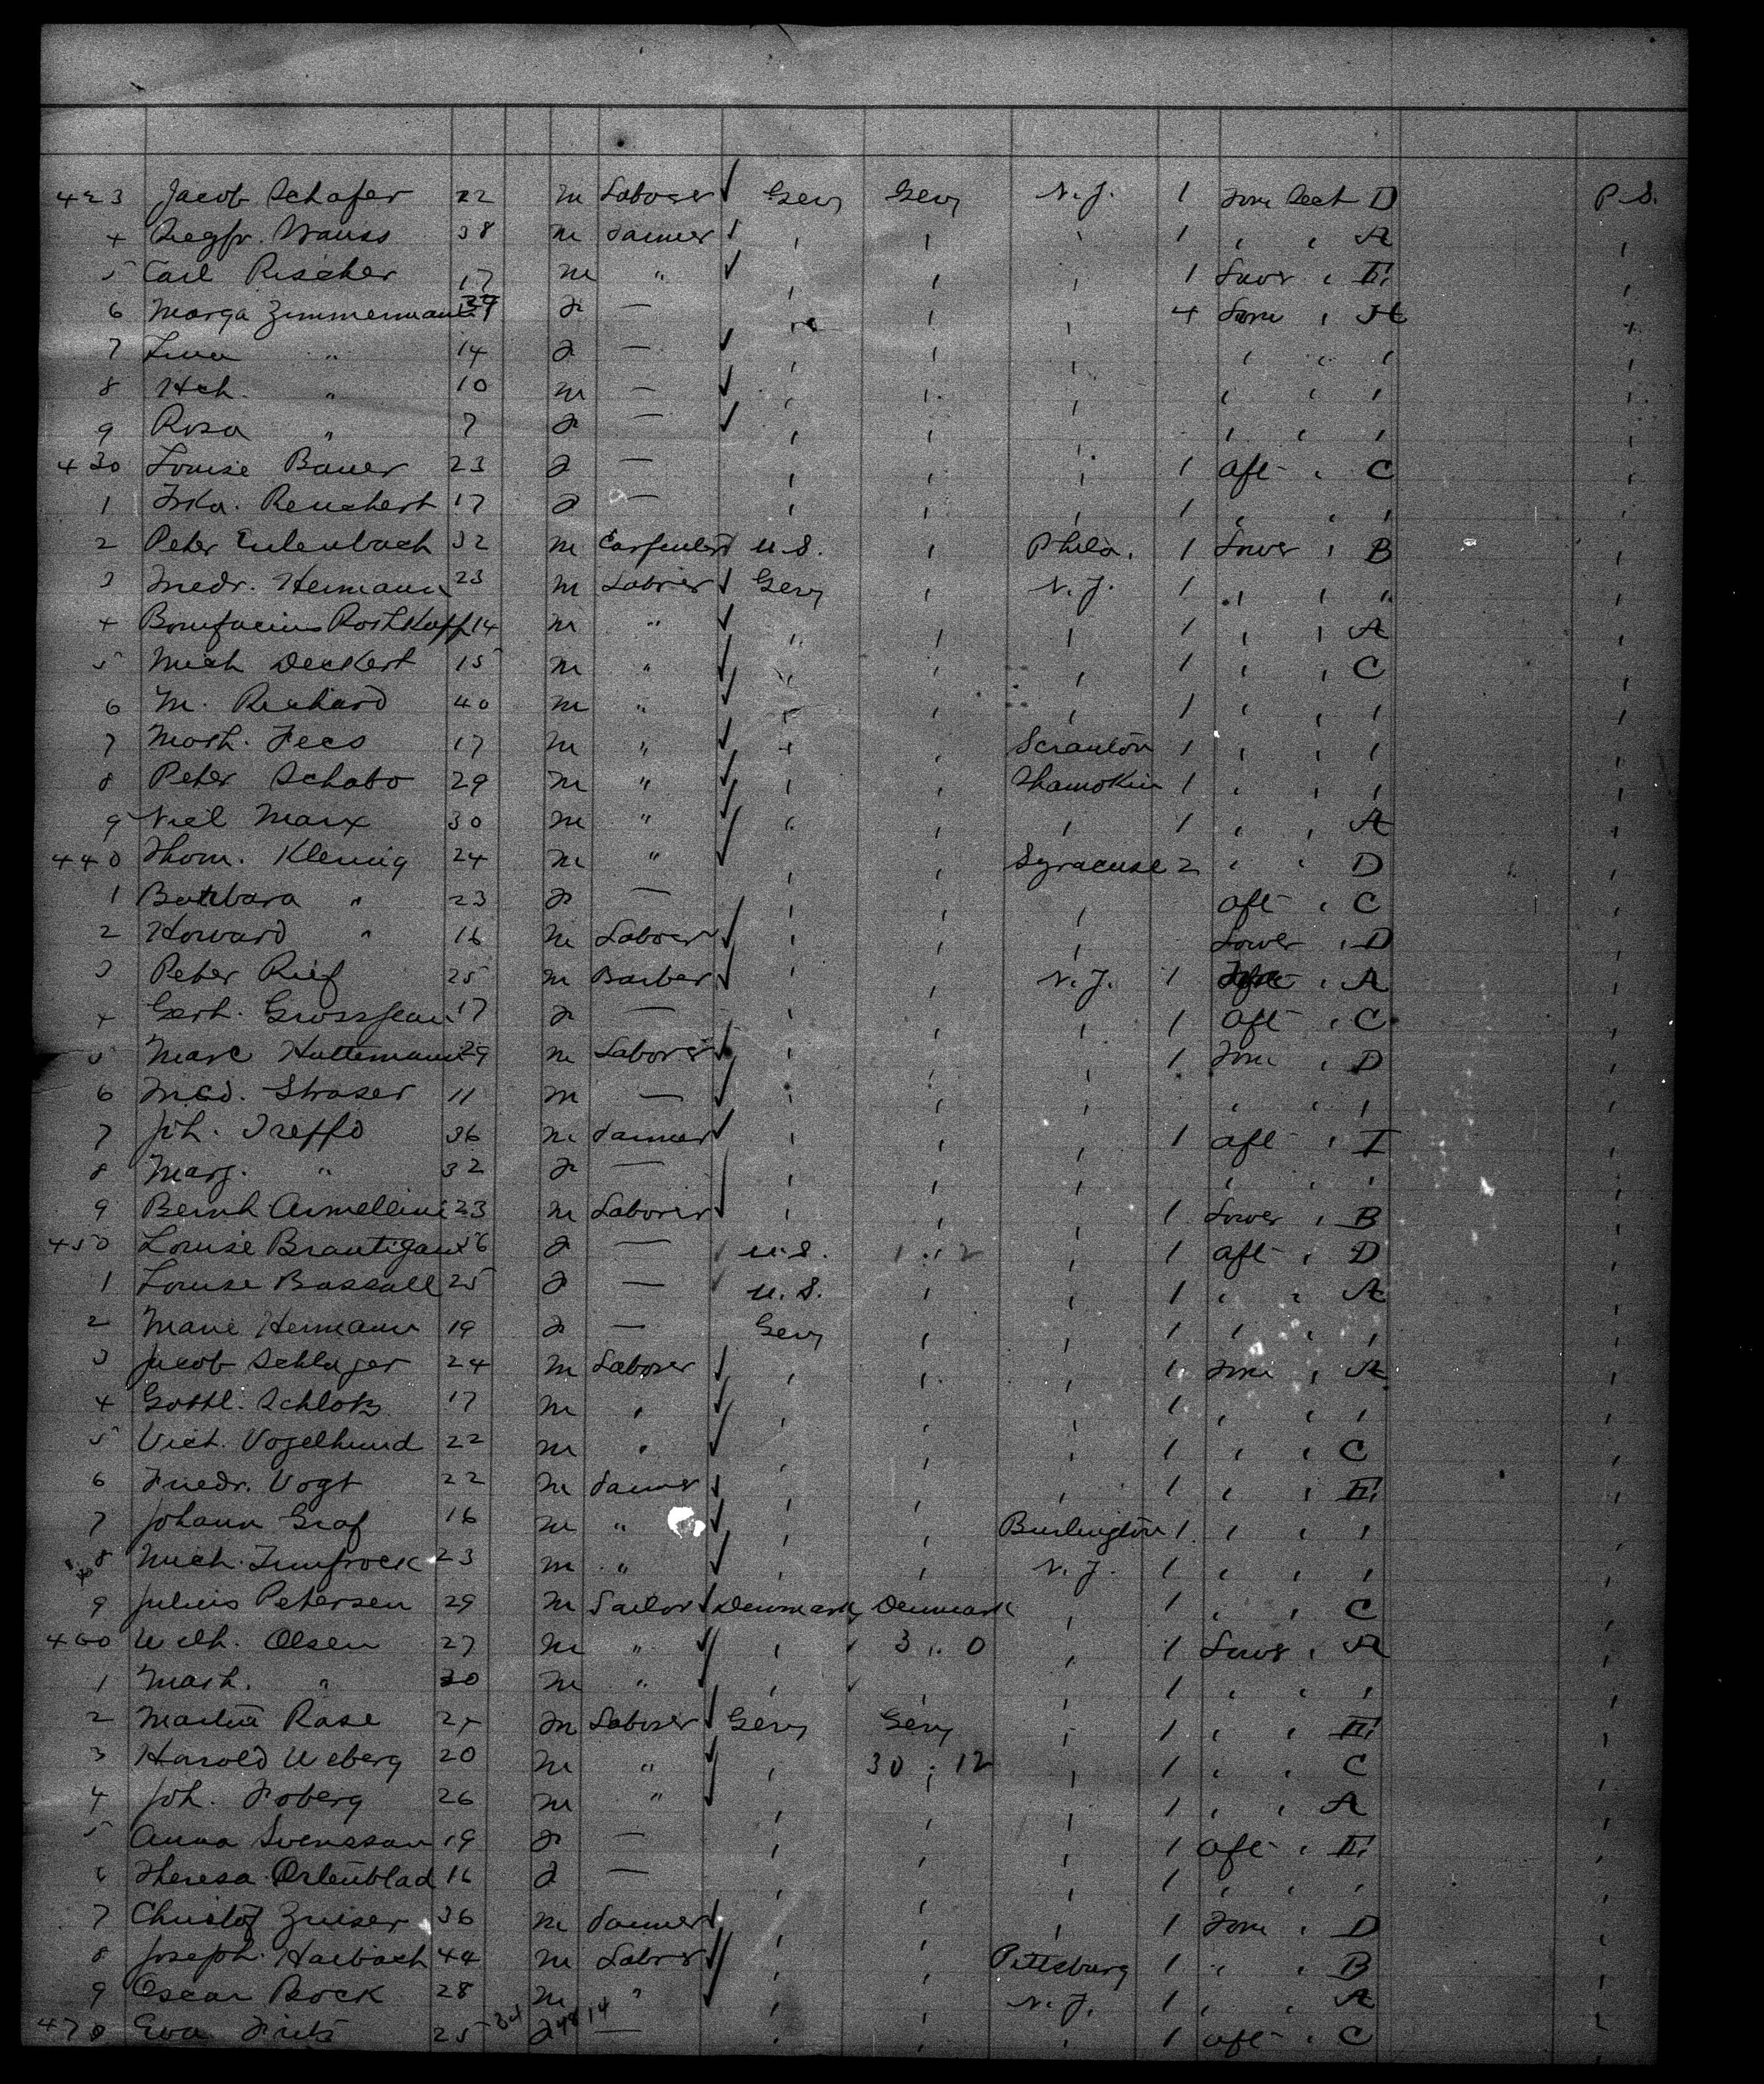 423 Jacob Schafer 22 m Laborer ✓ Gery Gery N.J. 1 Fore Deck D P.S.
4 Siegfr. Strauss 38 m Farmer ✓ , , , 1 , , A ,
5 Carl Rischer 17 m " ✓ , , , 1 Lower , E ,
6 Marga Zimmermann 39 f — , , , 4 Fore , H ,
7 Lina " 14 f — ✓ , , , , , , ,
8 Hch. " 10 m — ✓ , , , , , , ,
9 Rosa " 7 f — ✓ , , , , , , ,
430 Louise Bauer 23 f — , , , 1 Aft , C ,
1 Frka. Reuchert 17 f — , , , 1 , , , ,
2 Peter Eulenbach 32 m Carpenter U.S. , Phila. 1 Lower , B ,
3 Friedr. Hermann 23 m Laborer ✓ Gery , N.J. 1 , , , ,
4 Bonifacius Rothkopf 14 m " ✓ , , , 1 , , A ,
5 Mich Deckert 15 m " ✓ , , , 1 , , C ,
6 M. Richard 40 m " ✓ , , , 1 , , , ,
7 Math. Fees 17 m " ✓ , , Scranton 1 , , , ,
8 Peter Schabo 29 m " ✓ , , Shamokin 1 , , , ,
9 Nicl Marx 30 m " ✓ , , , 1 , , A ,
440 Thom. Klemig 24 m " ✓ , , Syracuse 2 , , D ,
1 Barbara " 23 f — , , , Aft , C ,
2 Howard " 16 m Laborer ✓ , , , Lower , D ,
3 Peter Rief 25 m Barber ✓ , , N.J. 1 , A ,
4 Gerh. Grossjean 17 f — , , , 1 Aft , C ,
5 Marc Huttemann 29 m Laborer ✓ , , , 1 Fore , D ,
6 Straser 11 m — ✓ , , , , , , ,
7 Joh. Treffo 36 m Farmer ✓ , , , 1 Aft , I ,
8 Marg. " 32 f — , , , , , , ,
9 Bernh Armellini 23 m Laborer ✓ , , , 1 Lower , B ,
450 Louise Brautigam 56 f — ✓ U.S. 1 . 2 , 1 Aft , D ,
1 Louise Bassall 25 f — ✓ U.S. , , 1 , , A ,
2 Marie Hermann 19 f — Gery , , 1 , , , ,
3 Jacob Schlager 24 m Laborer ✓ , , , 1 Fore , A ,
4 Gottl. Schlotz 17 m , ✓ , , , 1 , , , ,
5 Vict. Vogelhund 22 m " ✓ , , , 1 , , C ,
6 Friedr. Vogt 22 m Farmer ✓ , , , 1 , , E ,
7 Johann Graf 16 m " ✓ , , Burlington 1 , , , ,
8 Mich. Zumfrock 23 m " ✓ , , N.J. 1 , , , ,
9 Julius Petersen 29 m Sailor ✓ Denmark Denmark , 1 , , C ,
460 Wilh. Olsen 27 m " ✓ , ✓ 3 . 0 , 1 Lower , A ,
1 Math. " 30 m " ✓ , ✓ , , 1 , , , ,
2 Martin Rase m Laborer ✓ Gery Gery , 1 , , E ,
3 Harold Weberg 20 m " ✓ , 30 , 12 , 1 , , C ,
4 Joh. Froberg 26 m " ✓ , , , 1 , , A ,
5 Anna Svensson 19 f — , , , 1 Aft , E ,
6 Theresa Ortenblad 16 f — , , , 1 , , , ,
7 Christof Zuiser 36 m Farmer ✓ , , , 1 Fore , D ,
8 Joseph Harbach 44 m Laborer ✓ , , Pittsburg 1 , , B ,
9 Oscar Bock 28 m " ✓ , , N.J. 1 , , A ,
470 Eva Fritz 25 f — , , , 1 Aft , C ,